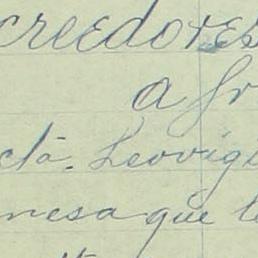 creedores
a fr
cta. Leovigi
mesa que le